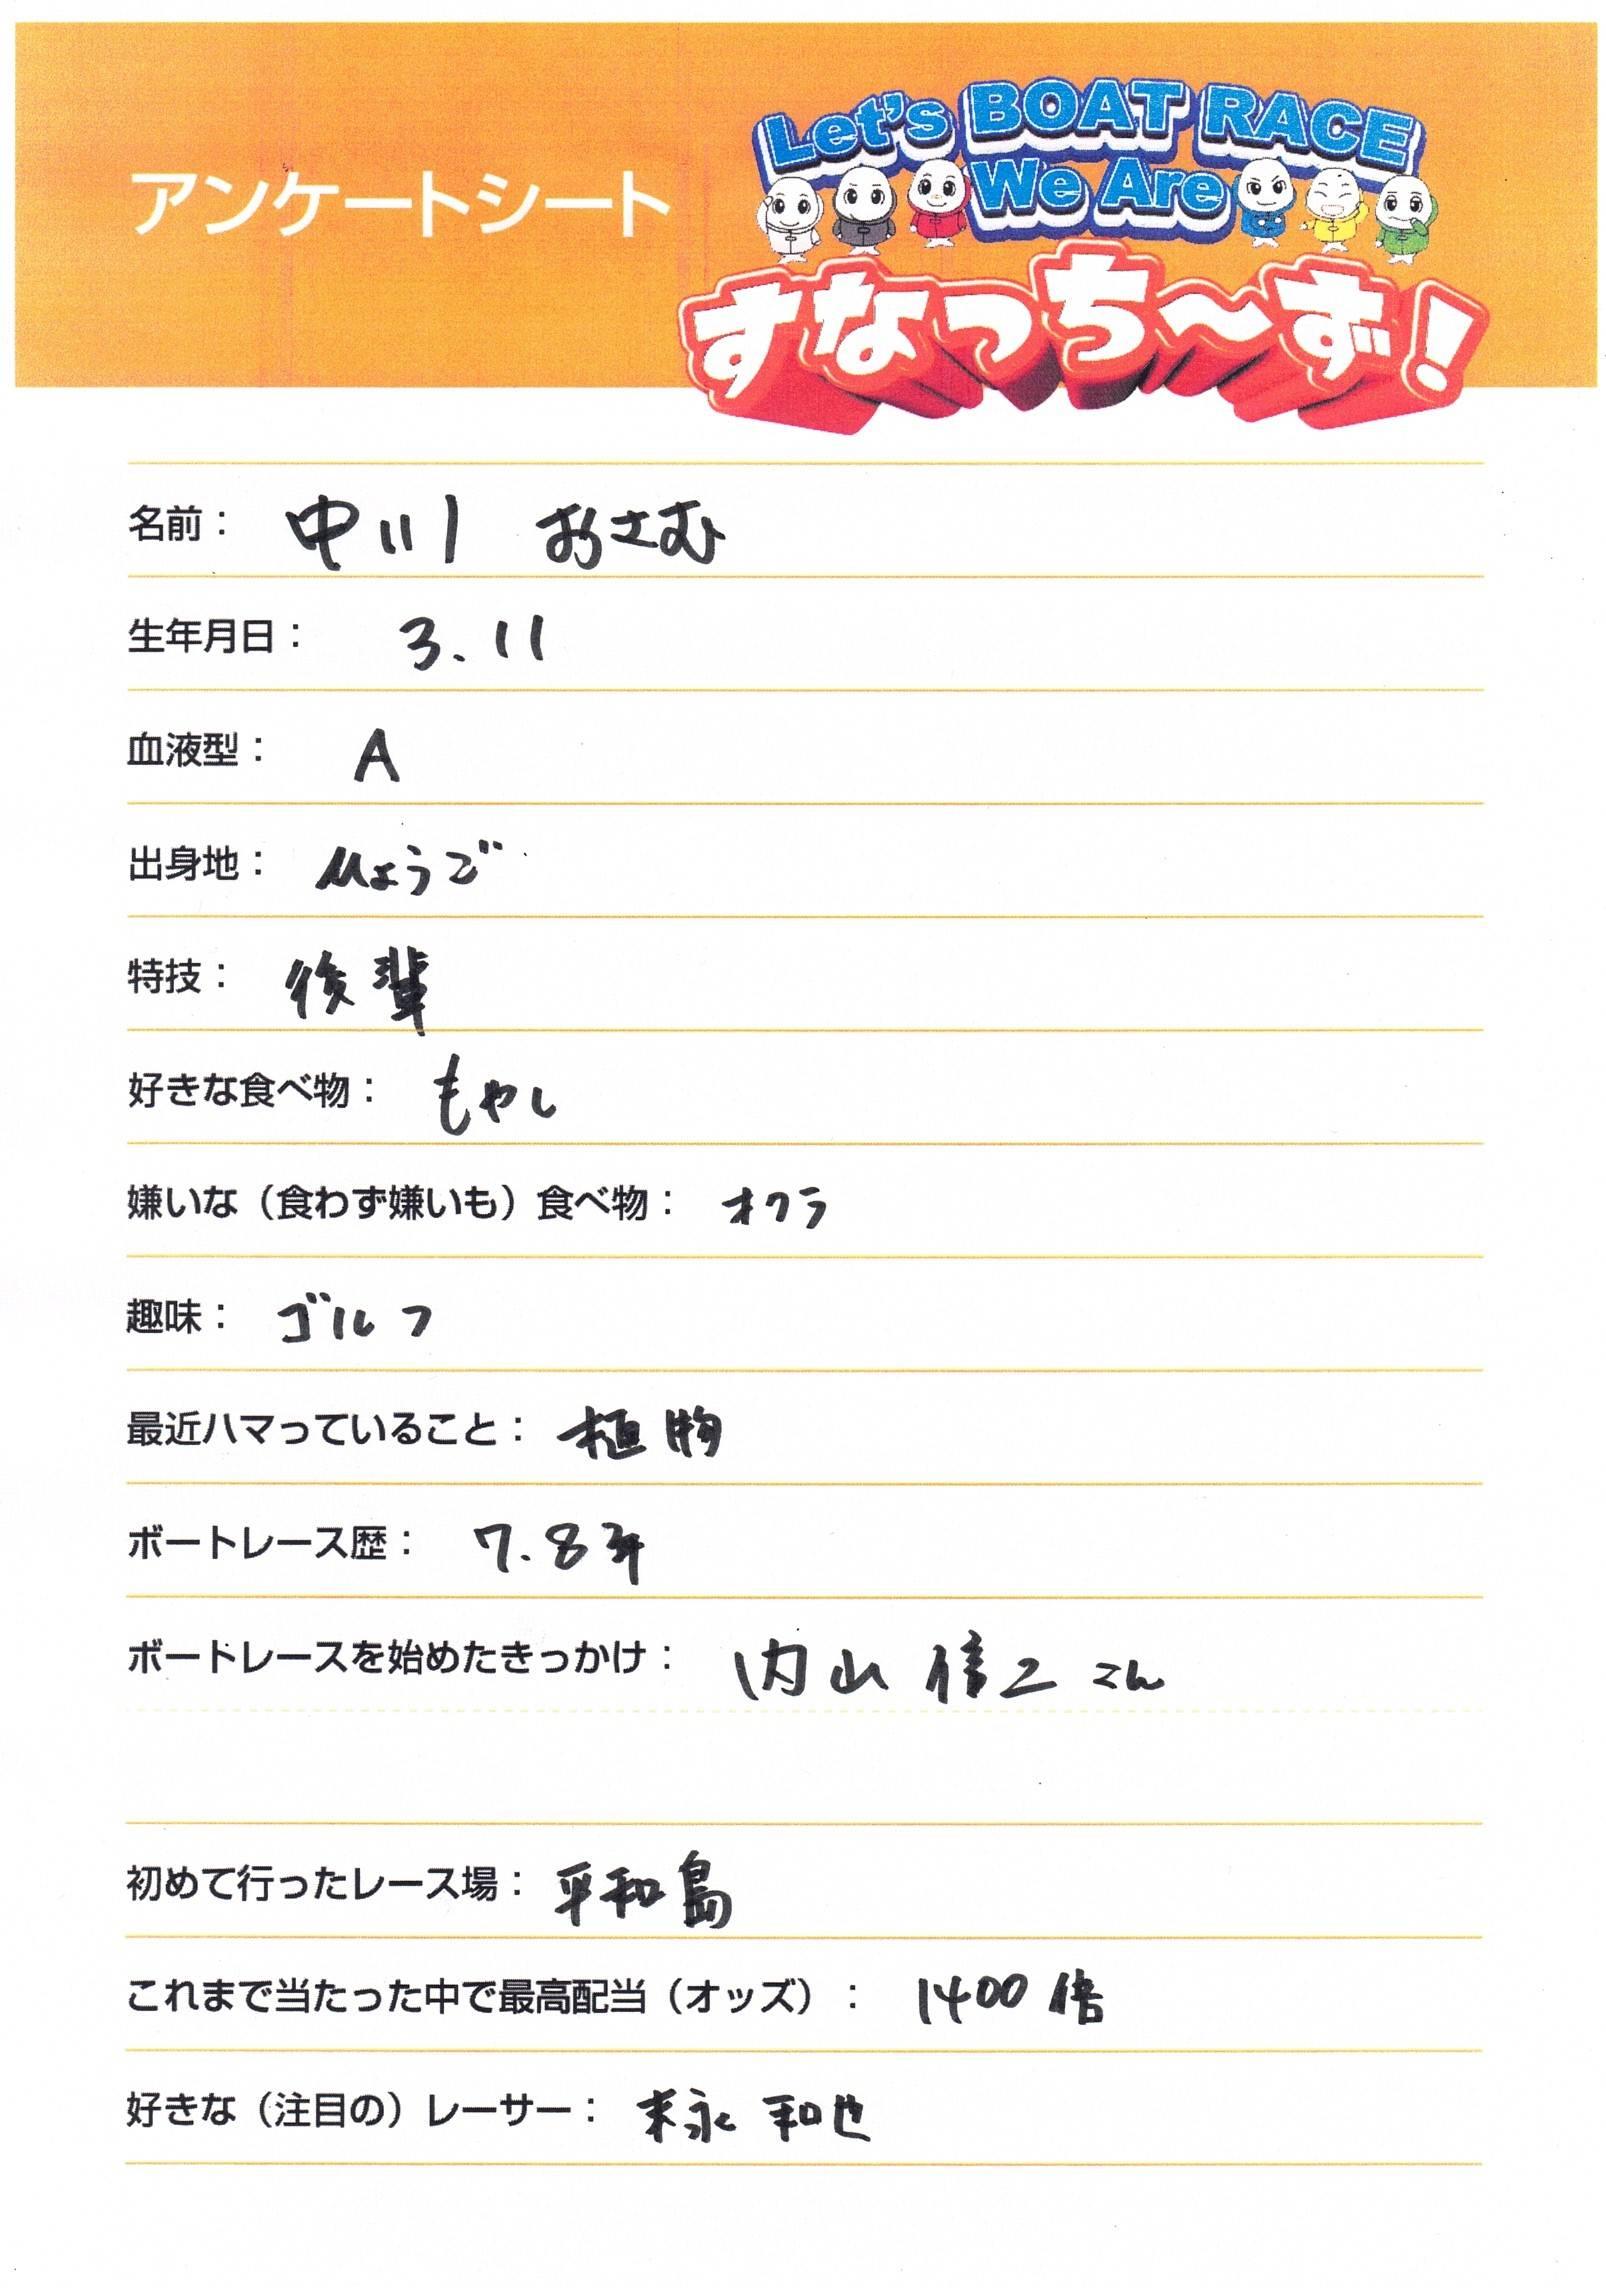 Let's BOAT RACE
アンケートシート
We Are
すなっち〜ず!
名前: 中川 おさむ
生年月日: 3.11
血液型: A
出身地: ひょうご
特技: 後輩
好きな食べ物: もやし
嫌いな(食わず嫌いも)食べ物: オクラ
趣味: ゴルフ
最近ハマっていること: 植物
ボートレース歴: 7.8年
ボートレースを始めたきっかけ: 内山信二さん
初めて行ったレース場: 平和島
これまで当たった中で最高配当(オッズ): 1400倍
好きな(注目の)レーサー: 末永 和也